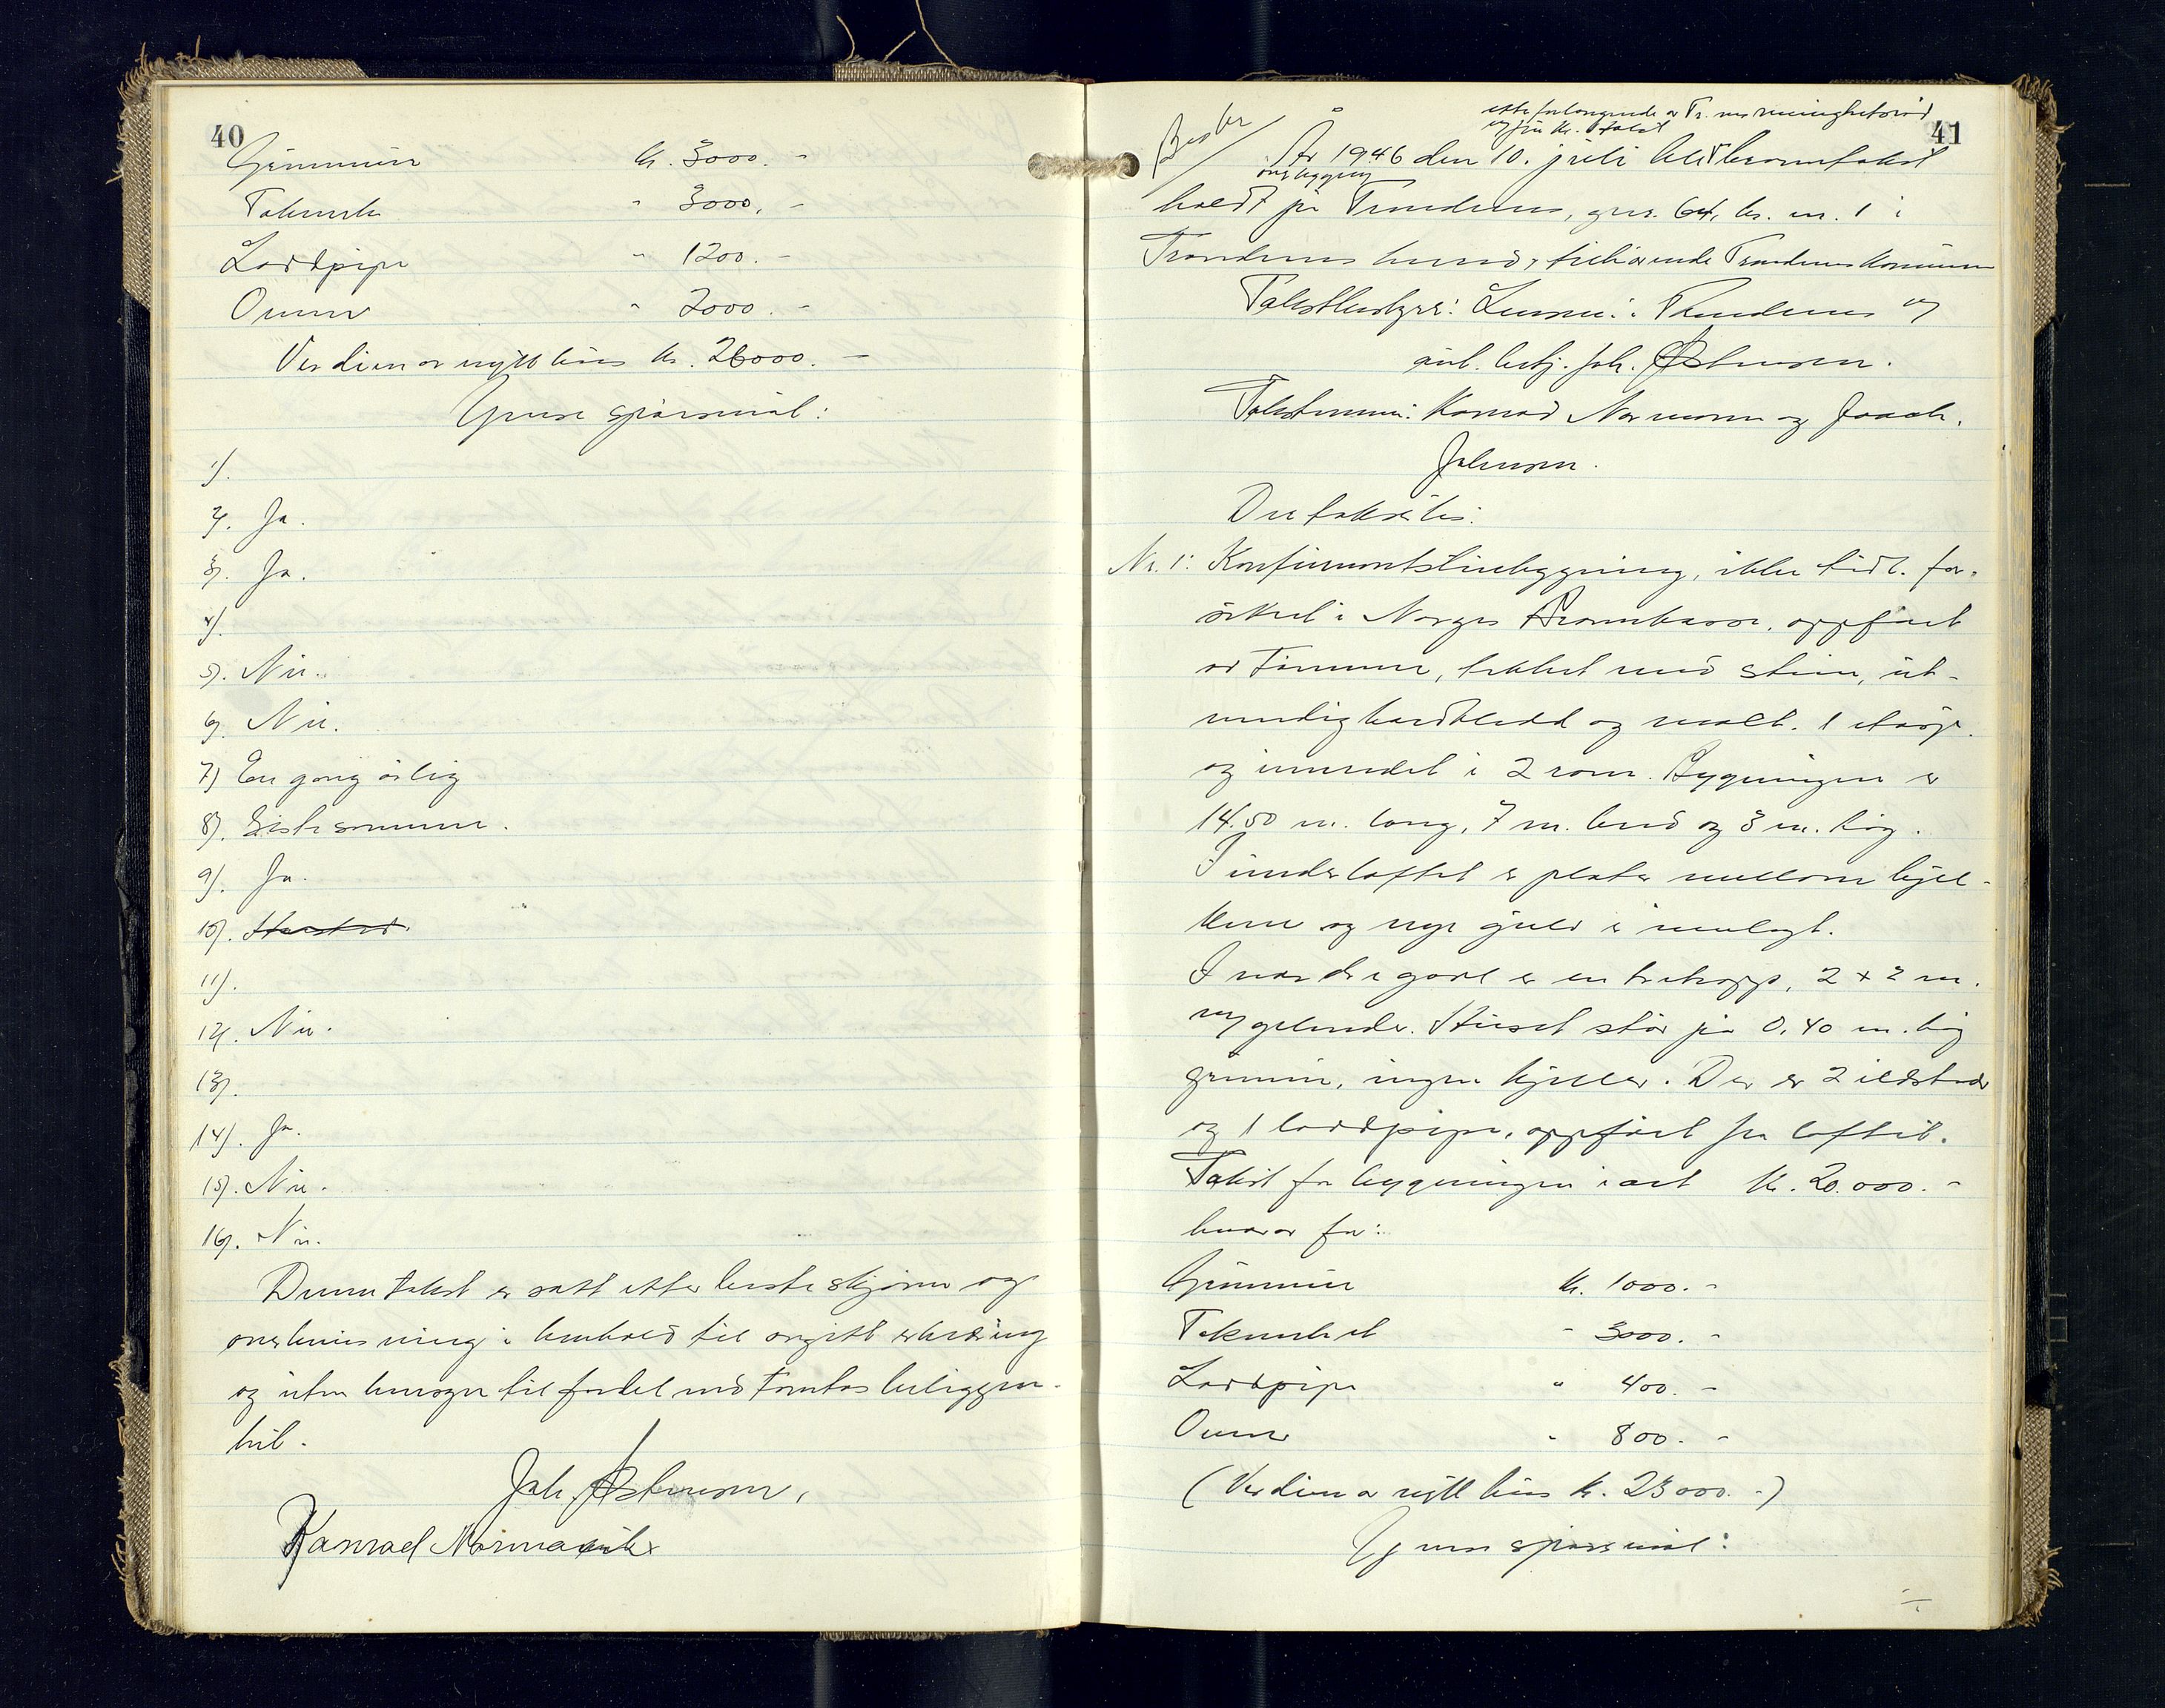 40
Grunnmur kr. 3000. -
Takverk " 3000. -
Loddpipe " 1200. -
Ovner " 2000. -
Verdien av nytt hus kr. 26000. -
Ymse spørsmål:
1).
2). Ja.
3). Ja.
4).
5). Nei.
6). Nei.
7) En gang årlig
8). Siste sommer.
9). Ja.
10). Harstad.
11).
12). Nei.
13).
14). Ja.
15). Nei.
16). Nei.
Denne takst er satt etter beste skjønn og
overbevisning i henhold til avgitt erklæring
og uten hensyn til fordel ved tomtas beliggen-
het.
Joh. Østensen.
Konrad Normann
41
etter forlangende av Tr. menighetsråd
År 1946 den 10. juli blei branntakst
og
holdt på Trondenes, gnr. 64, br. nr. 1 i
Trondenes herred, tilhørende Trondenes kommune
Takstbestyrer: Lensm. i Trondenes v/
aut. betj. Joh. Østensen.
Takstmenn: Konrad Normann og Jaaek.
Johnsen.
Der takseres:
Nr. 1: Konfirmantstuebygning, ikke tidl. for-
sikret i Norges Brannkasse, oppført
av tømmer, tekket med stein, ut-
vendig bordkledd og malt. 1 etasje
og innredet i 2 rom. Bygningen er
14.50 m. lang, 7 m. bred og 3 m. høg.
I underloftet er plater mellom bjel-
kene og nye gulv er innlagt.
I nordre gavl er en tretrapp, 2 x 2 m.
m/ gelender. Huset står på 0,40 m. høg
grunnmur, ingen kjeller. Der er 2 ildsteder
og 1 loddpipe, oppført fra loftet.
Takst for bygningen i alt kr. 20.000. -
hvorav for:
Grunnmur kr. 1000. -
Takverket " 3000. -
Loddpipe " 400. -
Ovner " 800. -
(Verdien av nytt hus kr. 23000. -)
Ymse spørsmål: